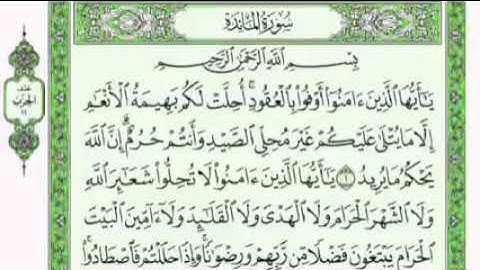 سُورَةُ المَائِدَةِ
بِسْمِ اللَّهِ الرَّحْمَٰنِ الرَّحِيمِ
يَٰٓأَيُّهَا ٱلَّذِينَ ءَامَنُوٓا۟ أَوْفُوا۟ بِٱلْعُقُودِ ۚ أُحِلَّتْ لَكُم بَهِيمَةُ ٱلْأَنْعَٰمِ
إِلَّا مَا يُتْلَىٰ عَلَيْكُمْ غَيْرَ مُحِلِّى ٱلصَّيْدِ وَأَنتُمْ حُرُمٌ ۗ إِنَّ ٱللَّهَ
يَحْكُمُ مَا يُرِيدُ ١ يَٰٓأَيُّهَا ٱلَّذِينَ ءَامَنُوا۟ لَا تُحِلُّوا۟ شَعَٰٓئِرَ ٱللَّهِ
وَلَا ٱلشَّهْرَ ٱلْحَرَامَ وَلَا ٱلْهَدْىَ وَلَا ٱلْقَلَٰٓئِدَ وَلَآ ءَآمِّينَ ٱلْبَيْتَ
ٱلْحَرَامَ يَبْتَغُونَ فَضْلًا مِّن رَّبِّهِمْ وَرِضْوَٰنًا ۚ وَإِذَا حَلَلْتُمْ فَٱصْطَادُوا۟ ۚ
الحزب
١١